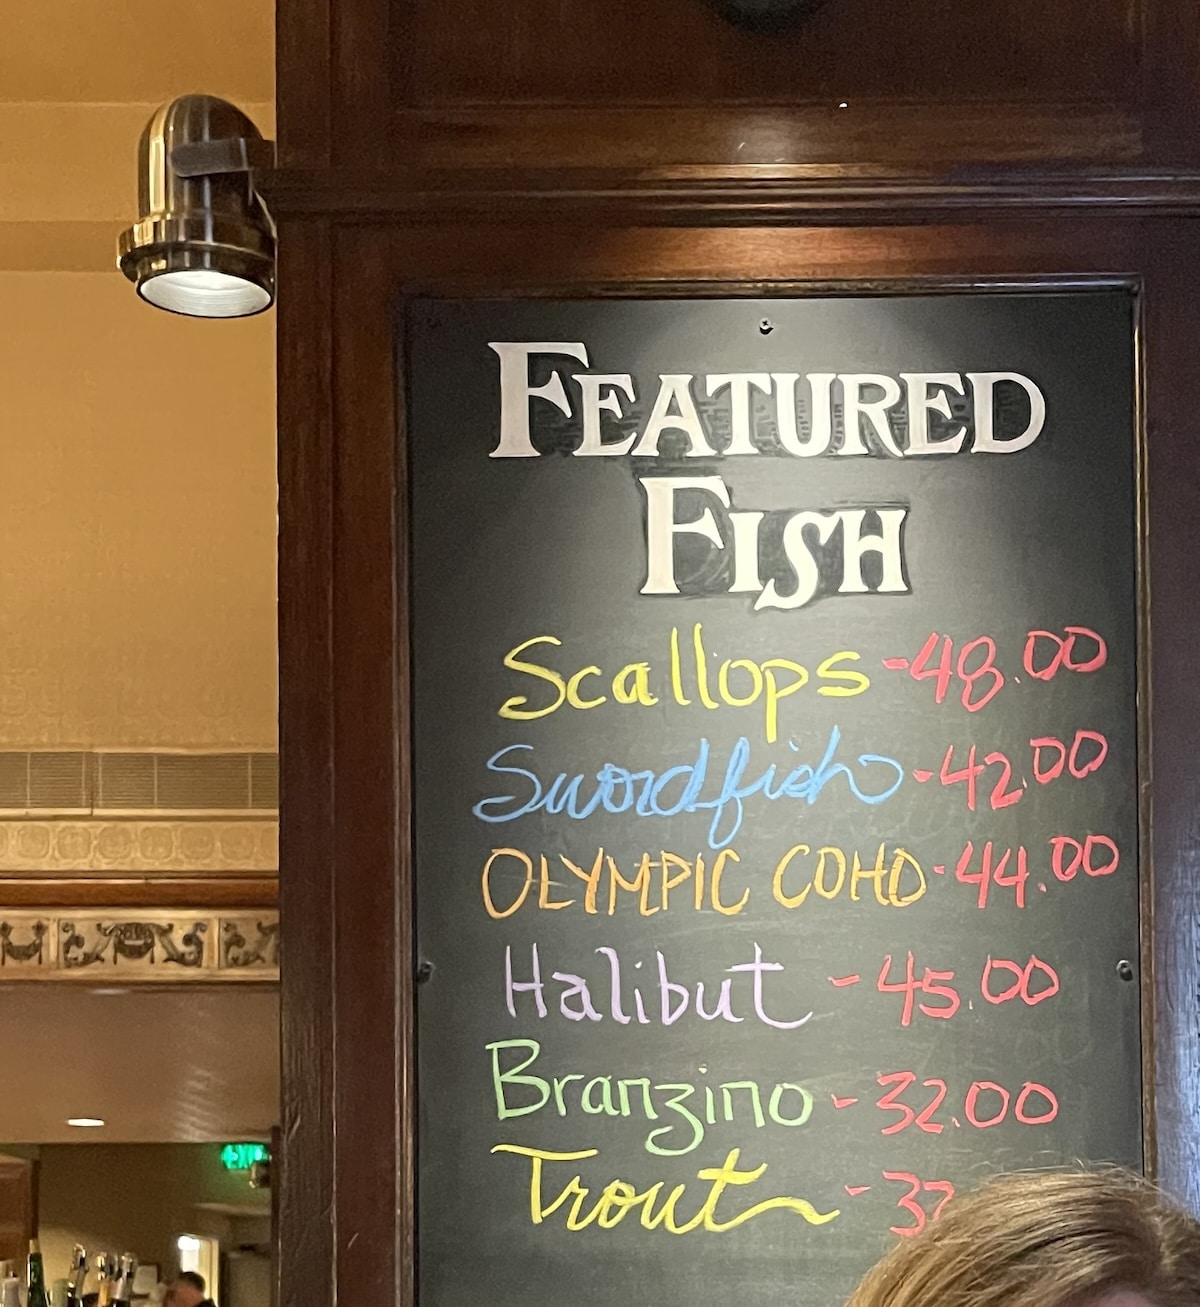 FEATURED
FISH
Scallops - 48.00
Swordfish - 42.00
OLYMPIC COHO - 44.00
Halibut - 45.00
Branzino - 32.00
Trout -
EXIT